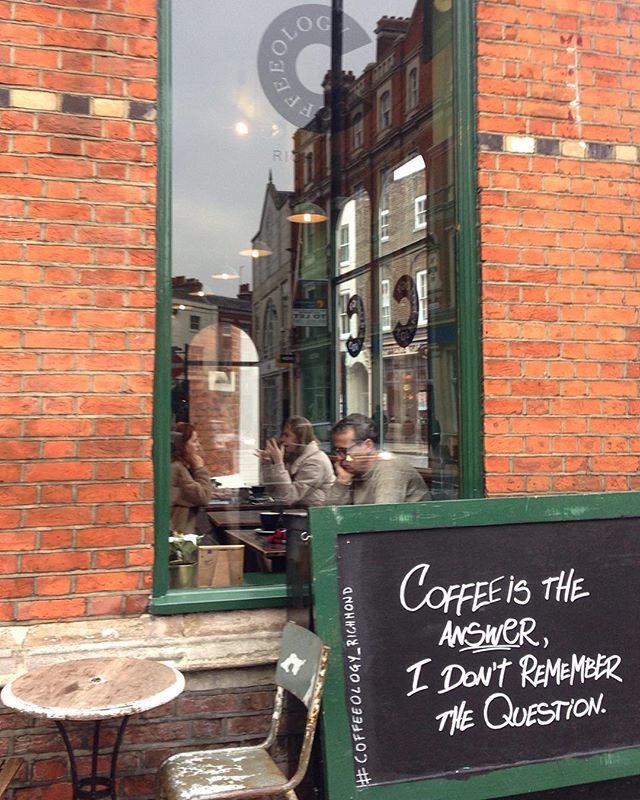 COFFEEOLOGY
RIC
TO LET
COFFEE IS THE
ANSWER,
I DON'T REMEMBER
THE QUESTION.
#COFFEEOLOGY_RICHMOND